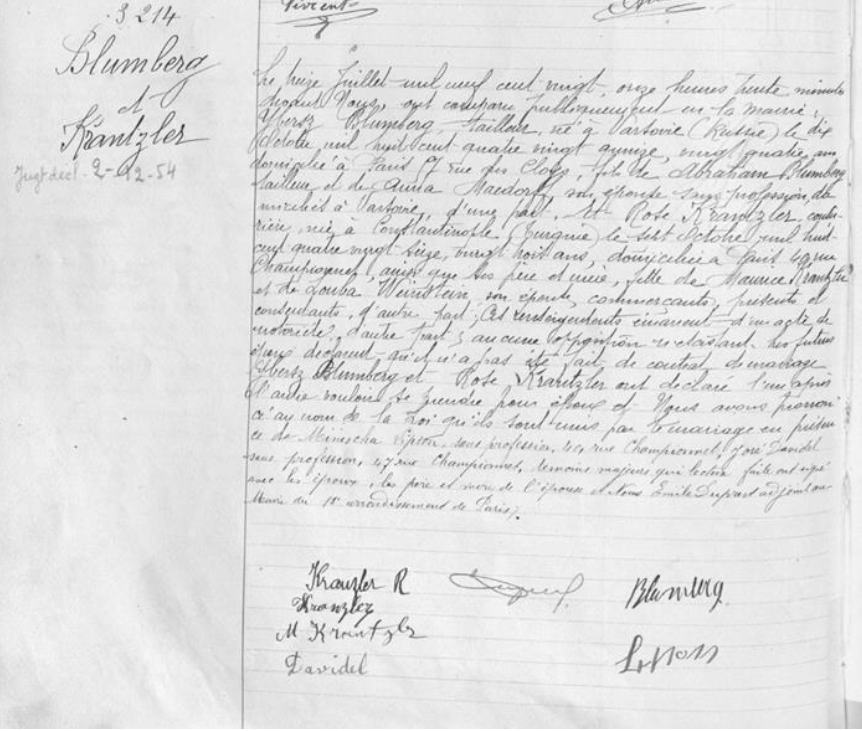 3 214
Blumberg
et
Krantzler
Jugt décl. 2-12-54
Vincent
Le seize Juillet mil neuf cent vingt, onze heures trente minutes
devant Nous, ont comparu publiquement en la mairie :
Hersz Blumberg, tailleur, né à Varsovie (Russie) le dix
Octobre mil huit cent quatre vingt quinze, vingt quatre ans
domicilié à Paris 7 rue des Cloys, fils de Abraham Blumberg
tailleur et de Anna son épouse sans profession, do
miciliés à Varsovie, d'une part. Et Rose Krantzler, coutu
rière, née à Constantinople (Turquie) le sept Octobre mil huit
cent quatre vingt seize, vingt trois ans, domiciliée à Paris 49 rue
Championnet, ainsi que ses père et mère, fille de Maurice Krantzler
et de Louba Weinstein, son épouse, commerçants, présents et
consentants, d'autre part ; Ces renseignements émanent d'un acte de
notoriété, d'autre part ; aucune opposition n'existant. Les futurs
époux déclarent qu'il n'a pas été fait de contrat de mariage
Hersz Blumberg et Rose Krantzler ont déclaré l'un après
l'autre vouloir se prendre pour époux et Nous avons pronon
cé au nom de la Loi qu'ils sont unis par le mariage en présen
ce de Lipson, sans profession, rue Championnet, José Davidel
sans profession, 47 rue Championnet, témoins majeurs qui lecture faite ont signé
avec les époux, les père et mère de l'épouse et Nous Emile Duprat adjoint au
Maire du 18e arrondissement de Paris.
Kranzler R
Blumberg
Kranzler
M Krantzler
Davidel
Lipson